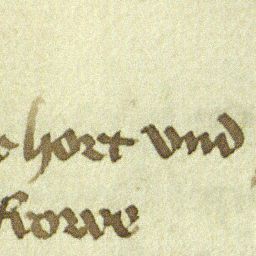 e hort vnd
frowe